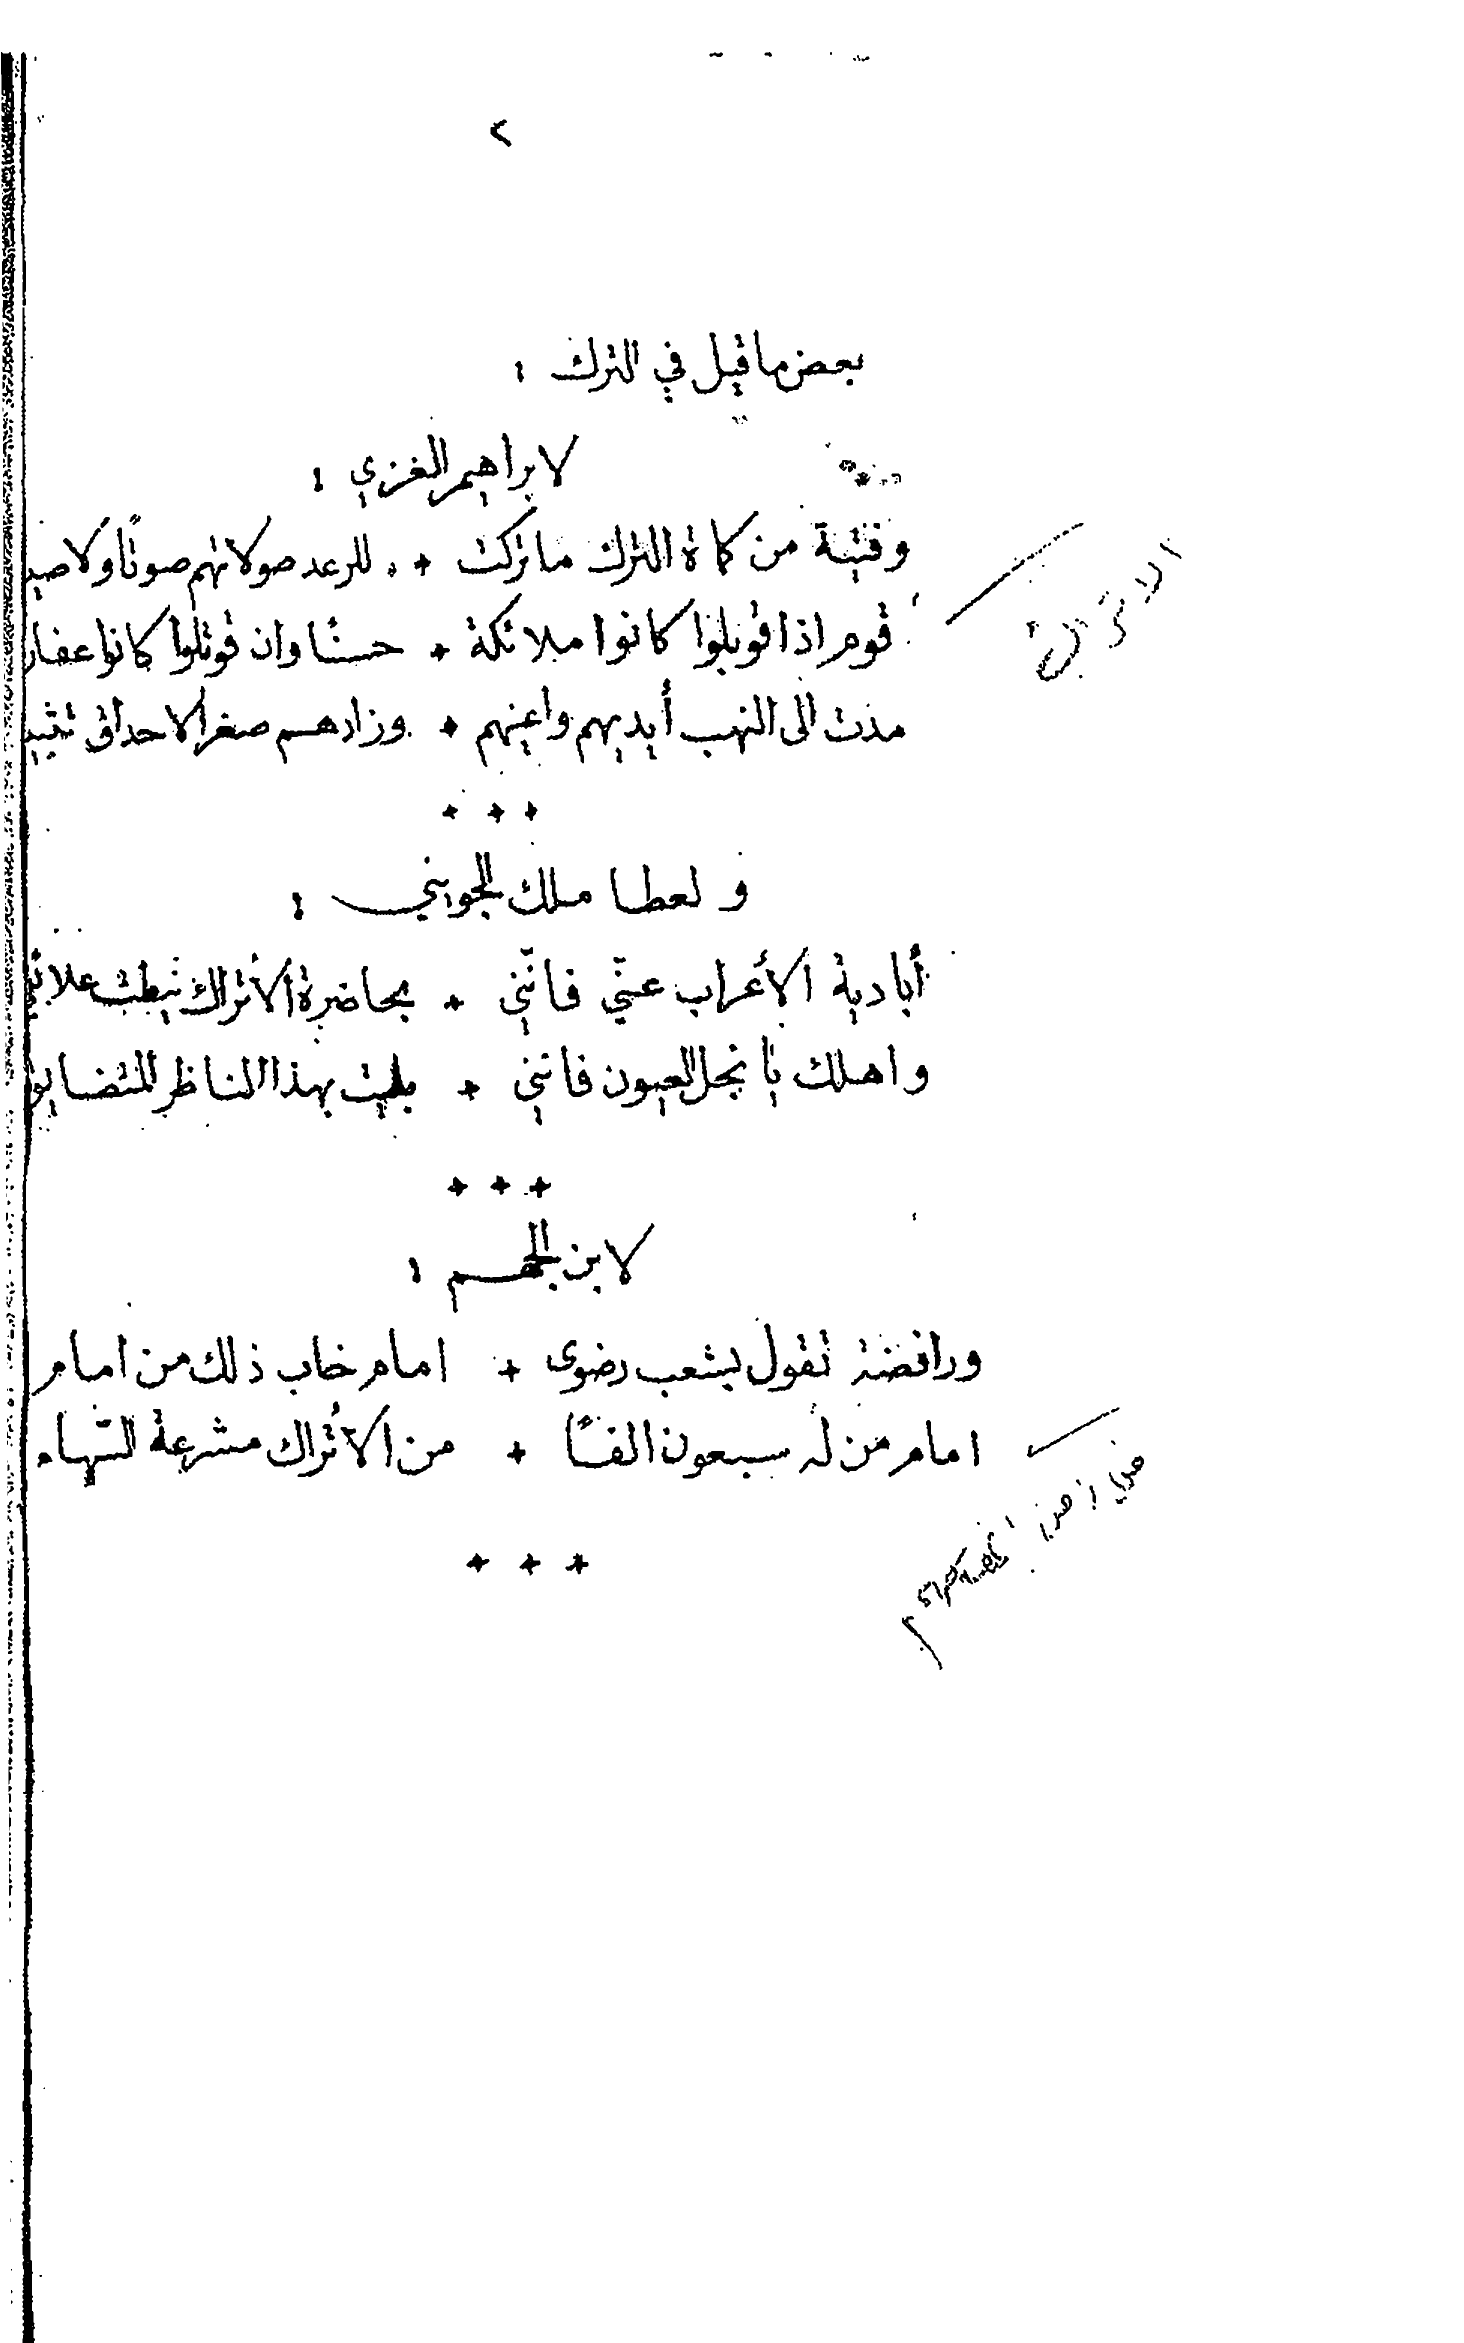 ٢
بعض ما قيل في الترك :
لابراهيم الغزي :
وفتية من كماة الترك ما تركت * للرعد صولاتهم صوتًا ولا صي
قوم اذا قوبلوا كانوا ملائكة * حسنًا وان قوتلوا كانوا عفار
مدت الى النهب أيديهم واعينهم * وزادهم صغر الاحداق تثبيـ
* * *
ولعطا ملك الجويني :
أبادية الأعراب عنّي فانّني * بحاضرة الأتراك نيطت علائـ
واهلك يا نجل العيون فانني * بليت بهذا الناظر المتضايق
* * *
لابن الجهم :
ورافضة تقول بشعب رضوى * امام خاب ذلك من امام
امام من له سبعون الفًا * من الأتراك مشرعة السّهام
* * *
الاتراك